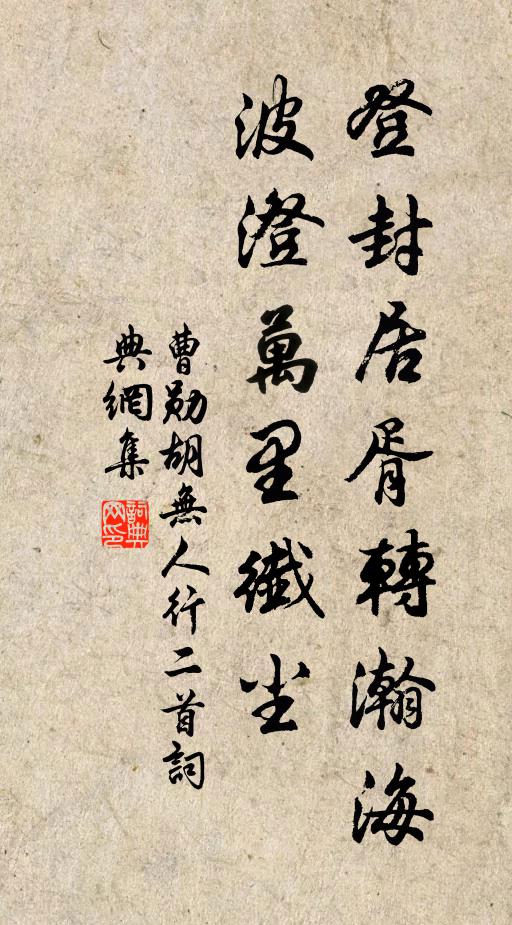 登封居胥轉瀚海
波澄萬里纖尘
曹勋胡無人行二首詞
典網集
詞典
网印